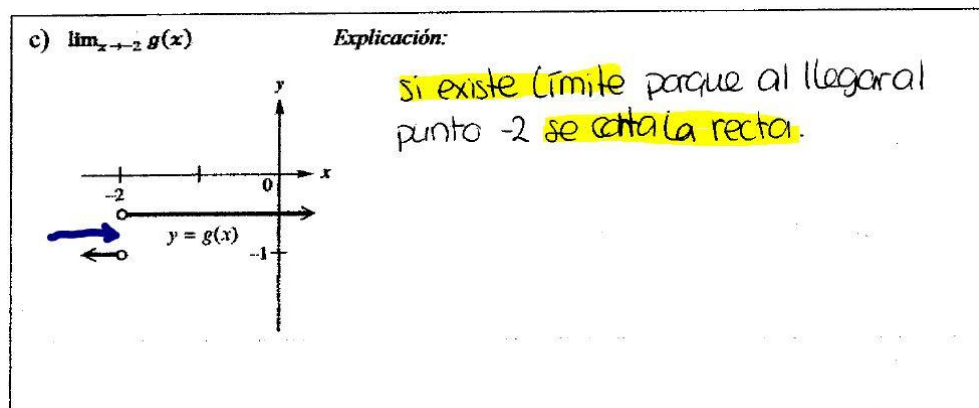 c) lim x→-2 g(x) Explicación:
si existe límite porque al llegar al
punto -2 se corta la recta.
y
0 x
-2
y = g(x)
-1